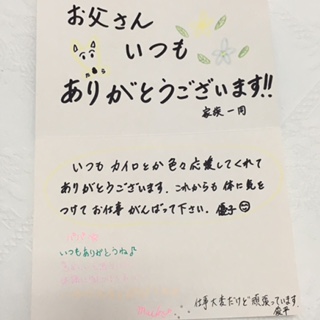 お父さん
いつも
ありがとうございます!!
家族一同
いつもカイロとか色々応援してくれて
ありがとうございます。これからも体に気を
つけてお仕事がんばって下さい。優子
いつもありがとうね♪
仕事大変だけど頑張っています